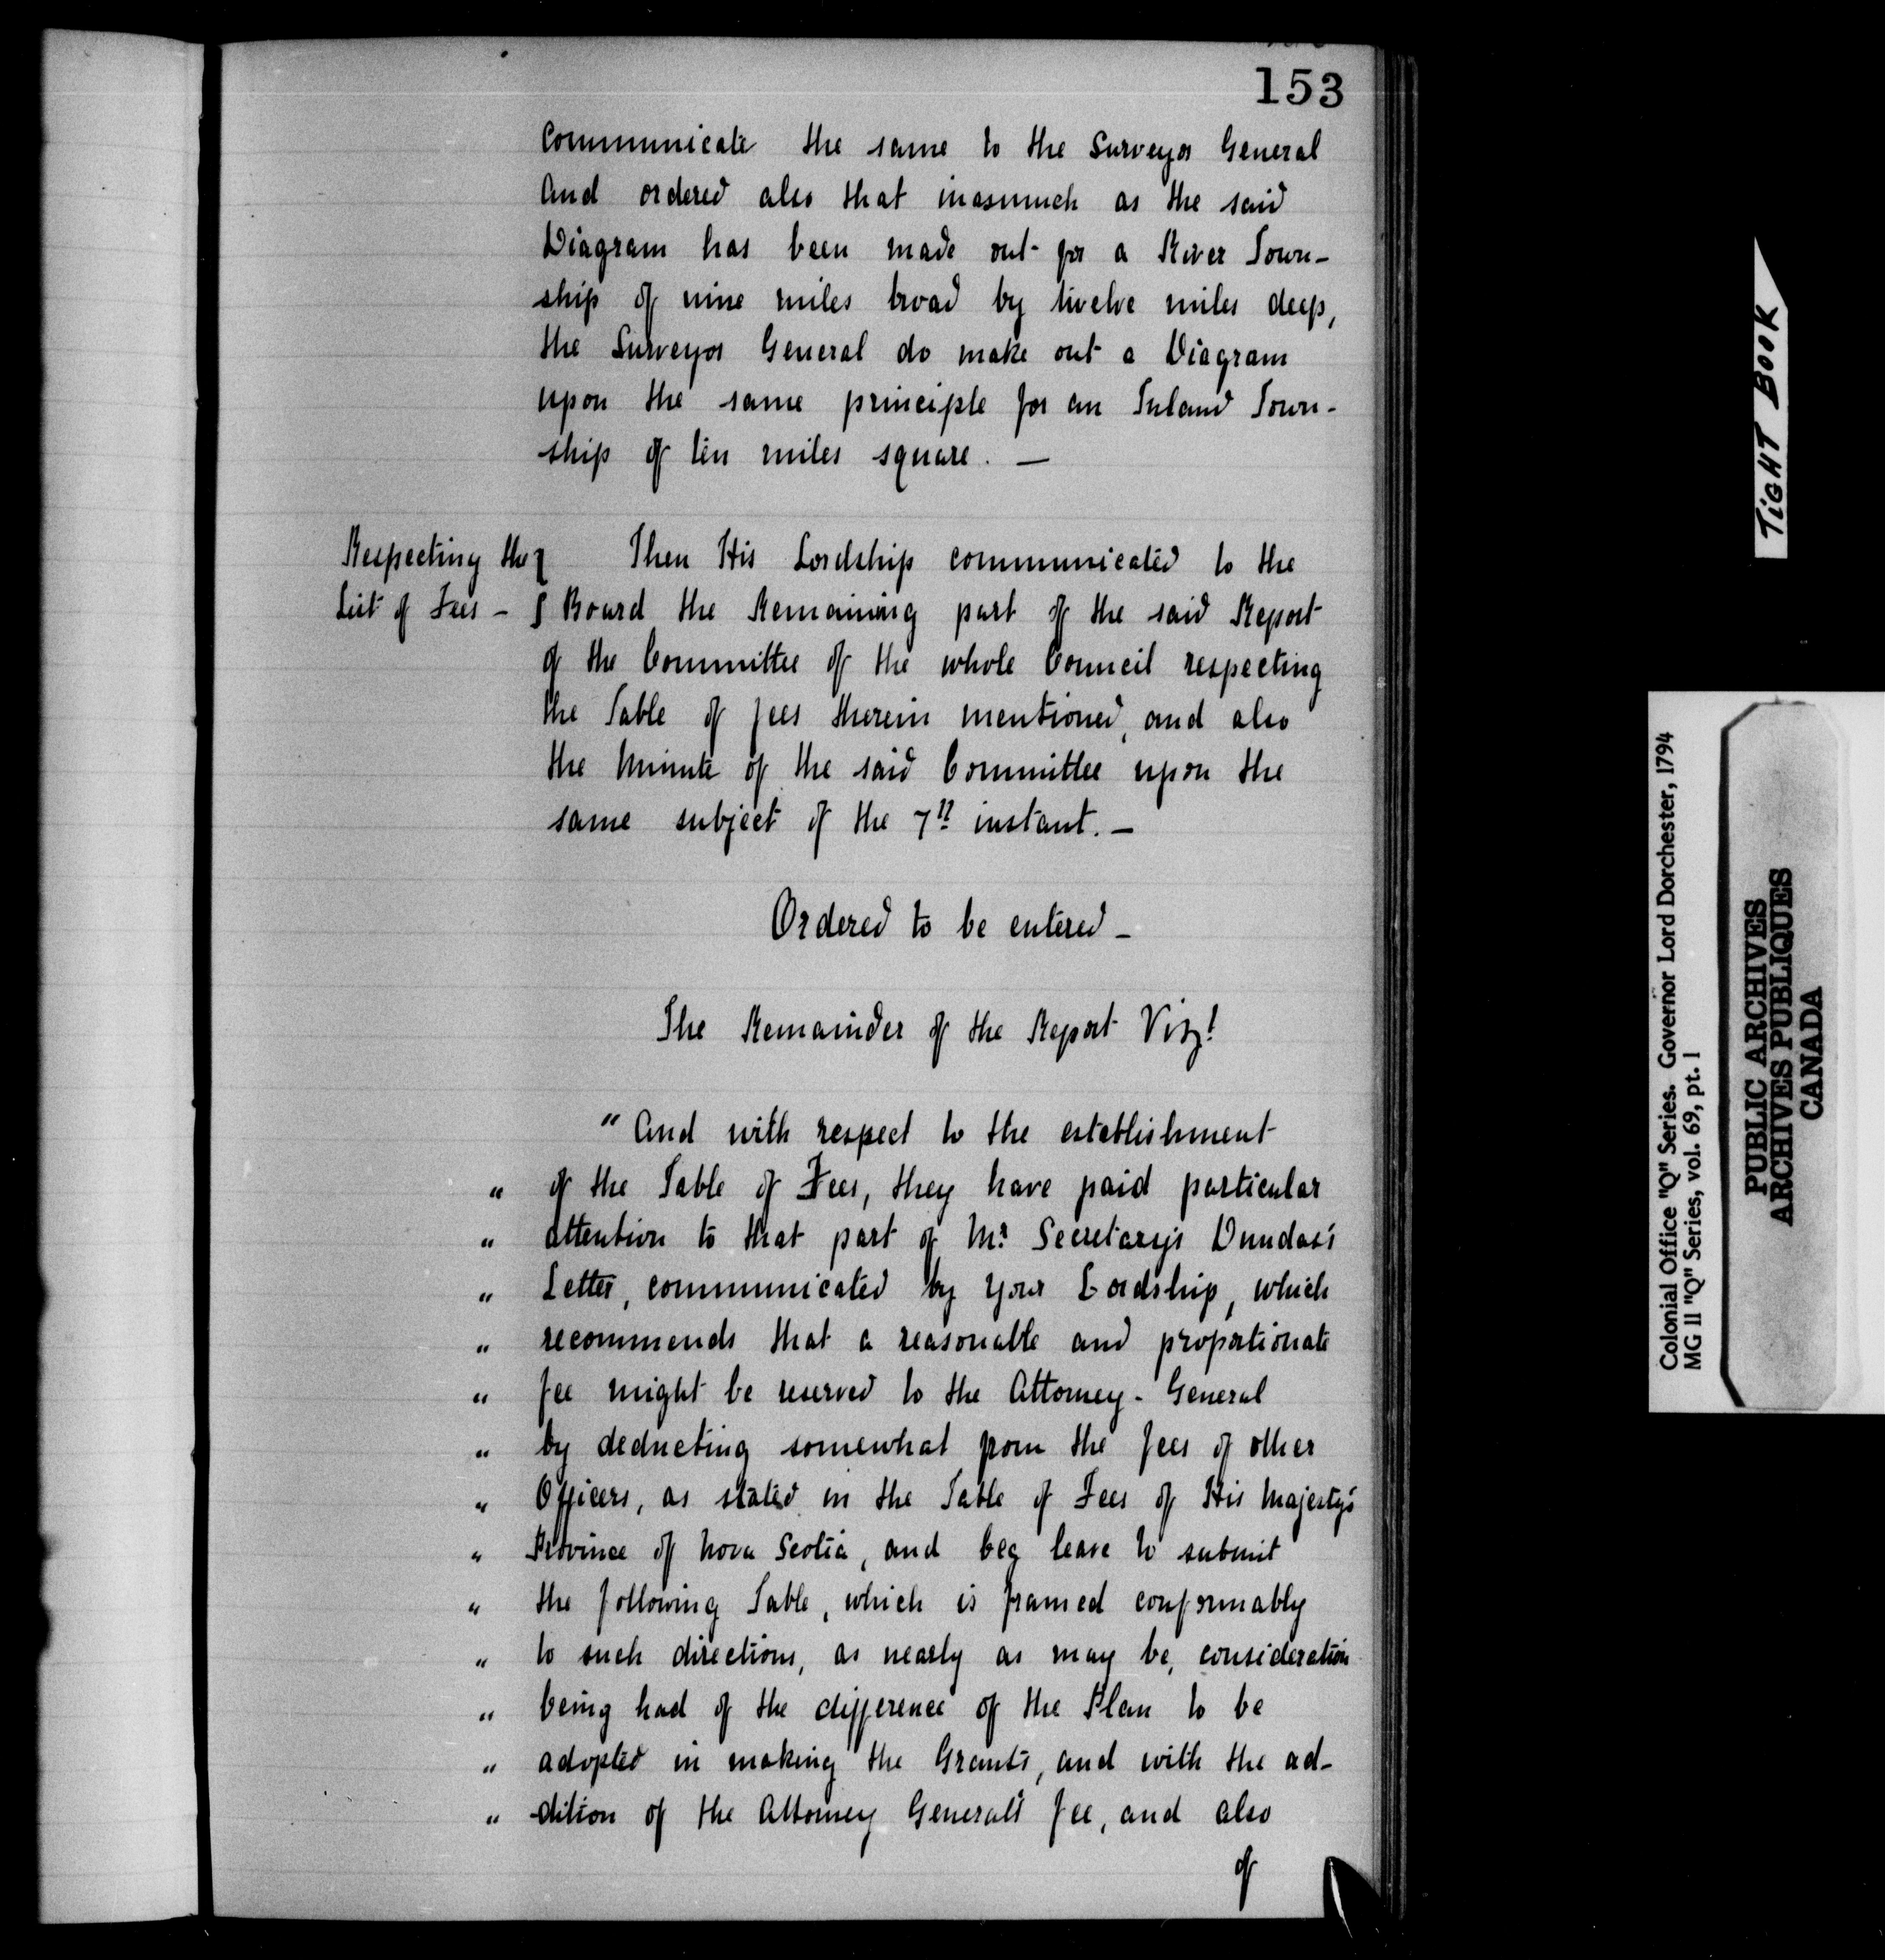 153
Communicate the same to the Surveyor General
And ordered also that inasmuch as the said
Diagram has been made out for a River Town-
ship of nine miles broad by twelve miles deep,
the Surveyor General do make out a Diagram
upon the same principle for an Inland Town-
ship of ten miles square. —
Respecting the
List of Fees —
Then His Lordship communicated to the
Board the Remaining part of the said Report
of the Committee of the whole Council respecting
the Table of fees therein mentioned, and also
the Minute of the said Committee upon the
same subject of the 7th instant. —
Ordered to be entered —
The Remainder of the Report Vizt
" And with respect to the establishment
" of the Table of Fees, they have paid particular
" attention to that part of Mr Secretary's Dundas's
" Letter, communicated by Your Lordship, which
" recommends that a reasonable and proportionate
" fee might be reserved to the Attorney-General
" by deducting somewhat from the fees of other
" Officers, as stated in the Table of Fees of His Majesty's
" Province of Nova Scotia, and beg leave to submit
" the following Table, which is framed conformably
" to such directions, as nearly as may be, consideration
" being had of the difference of the Plan to be
" adopted in making the Grants, and with the ad-
" -dition of the Attorney General's fee, and also
of
TIGHT BOOK
Colonial Office "Q" Series. Governor Lord Dorchester, 1794
MG 11 "Q" Series, vol. 69, pt. 1
PUBLIC ARCHIVES
ARCHIVES PUBLIQUES
CANADA